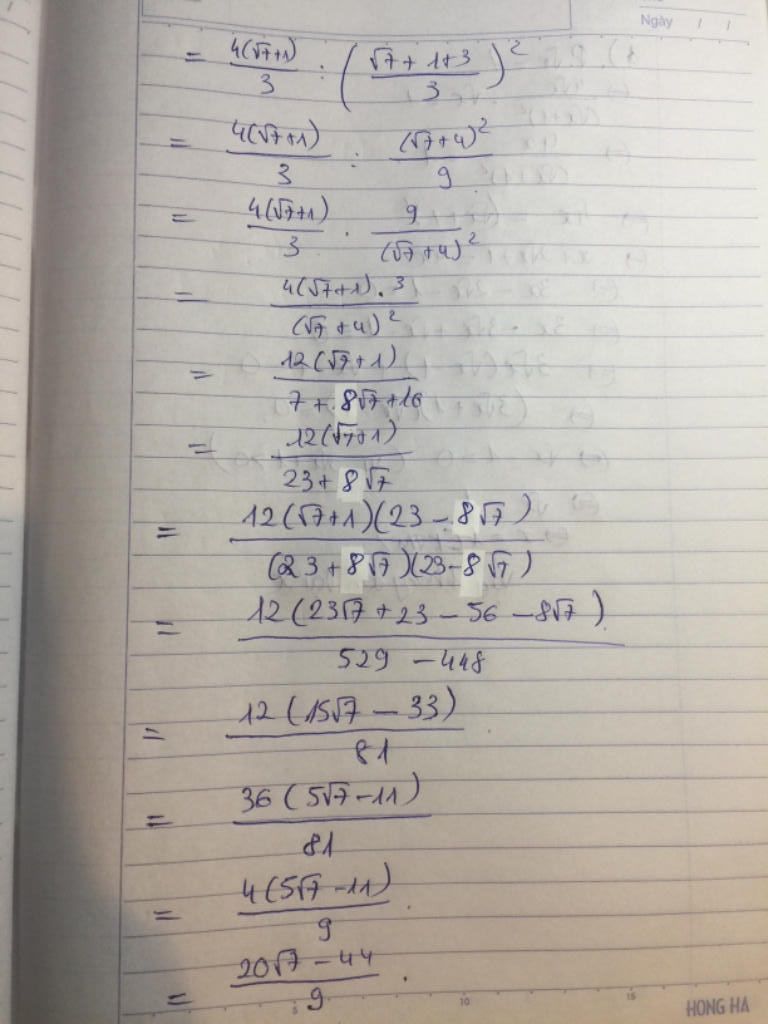 Ngày / /
= 4(√7+1)/3 : ((√7 + 1 + 3)/3)²
= 4(√7+1)/3 : (√7+4)²/9
= 4(√7+1)/3 . 9/(√7+4)²
= 4(√7+1).3/(√7+4)²
= 12(√7+1)/(7 + 8√7 + 16)
= 12(√7+1)/(23 + 8√7)
= 12(√7+1)(23 - 8√7)/((23 + 8√7)(23 - 8√7))
= 12(23√7 + 23 - 56 - 8√7)/(529 - 448)
= 12(15√7 - 33)/81
= 36(5√7 - 11)/81
= 4(5√7 - 11)/9.
= (20√7 - 44)/9.
5 10 15
HONG HA